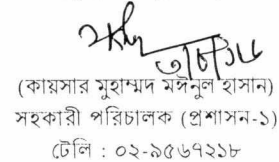 ৩১৮।১৬
(কায়সার মুহাম্মদ মঈনুল হাসান)
সহকারী পরিচালক (প্রশাসন-১)
টেলি : ০২-৯৫৬৭২১৮